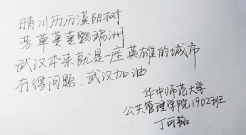 晴川历历汉阳树
芳草萋萋鹦鹉洲
武汉本来就是一座英雄的城市
有得问题，武汉加油
华中师范大学
公共管理学院1902班
丁